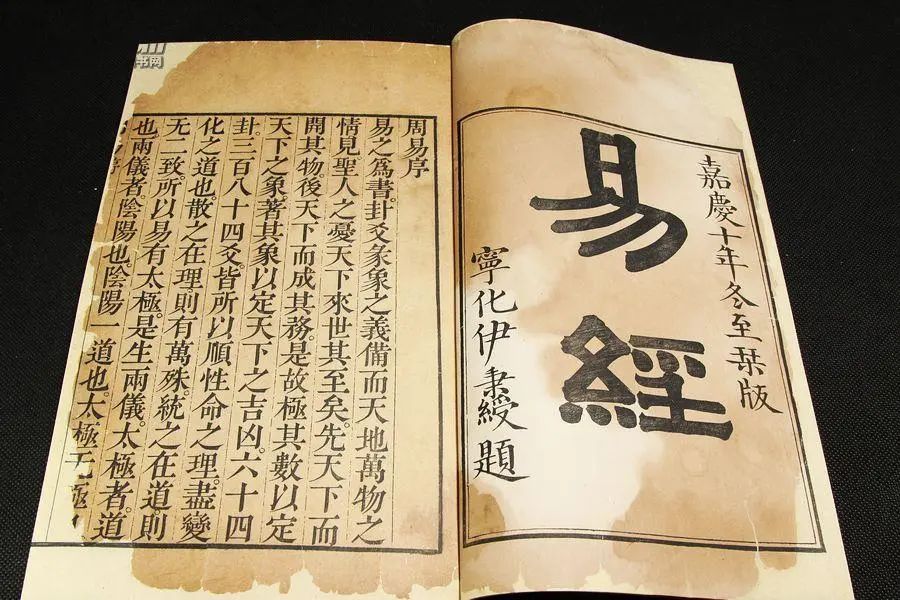 嘉慶十年冬至栞版
易經
寧化伊秉綬題
周易序
易之爲書。卦爻彖象之義備而天地萬物之
情見。聖人之憂天下來世其至矣。先天下而
開其物。後天下而成其務。是故極其數以定
天下之象。著其象以定天下之吉凶。六十四
卦。三百八十四爻。皆所以順性命之理。盡變
化之道也。散之在理。則有萬殊。統之在道。則
无二致。所以易有太極。是生兩儀。太極者。道
也。兩儀者。陰陽也。陰陽一道也。太極无極
序
书网